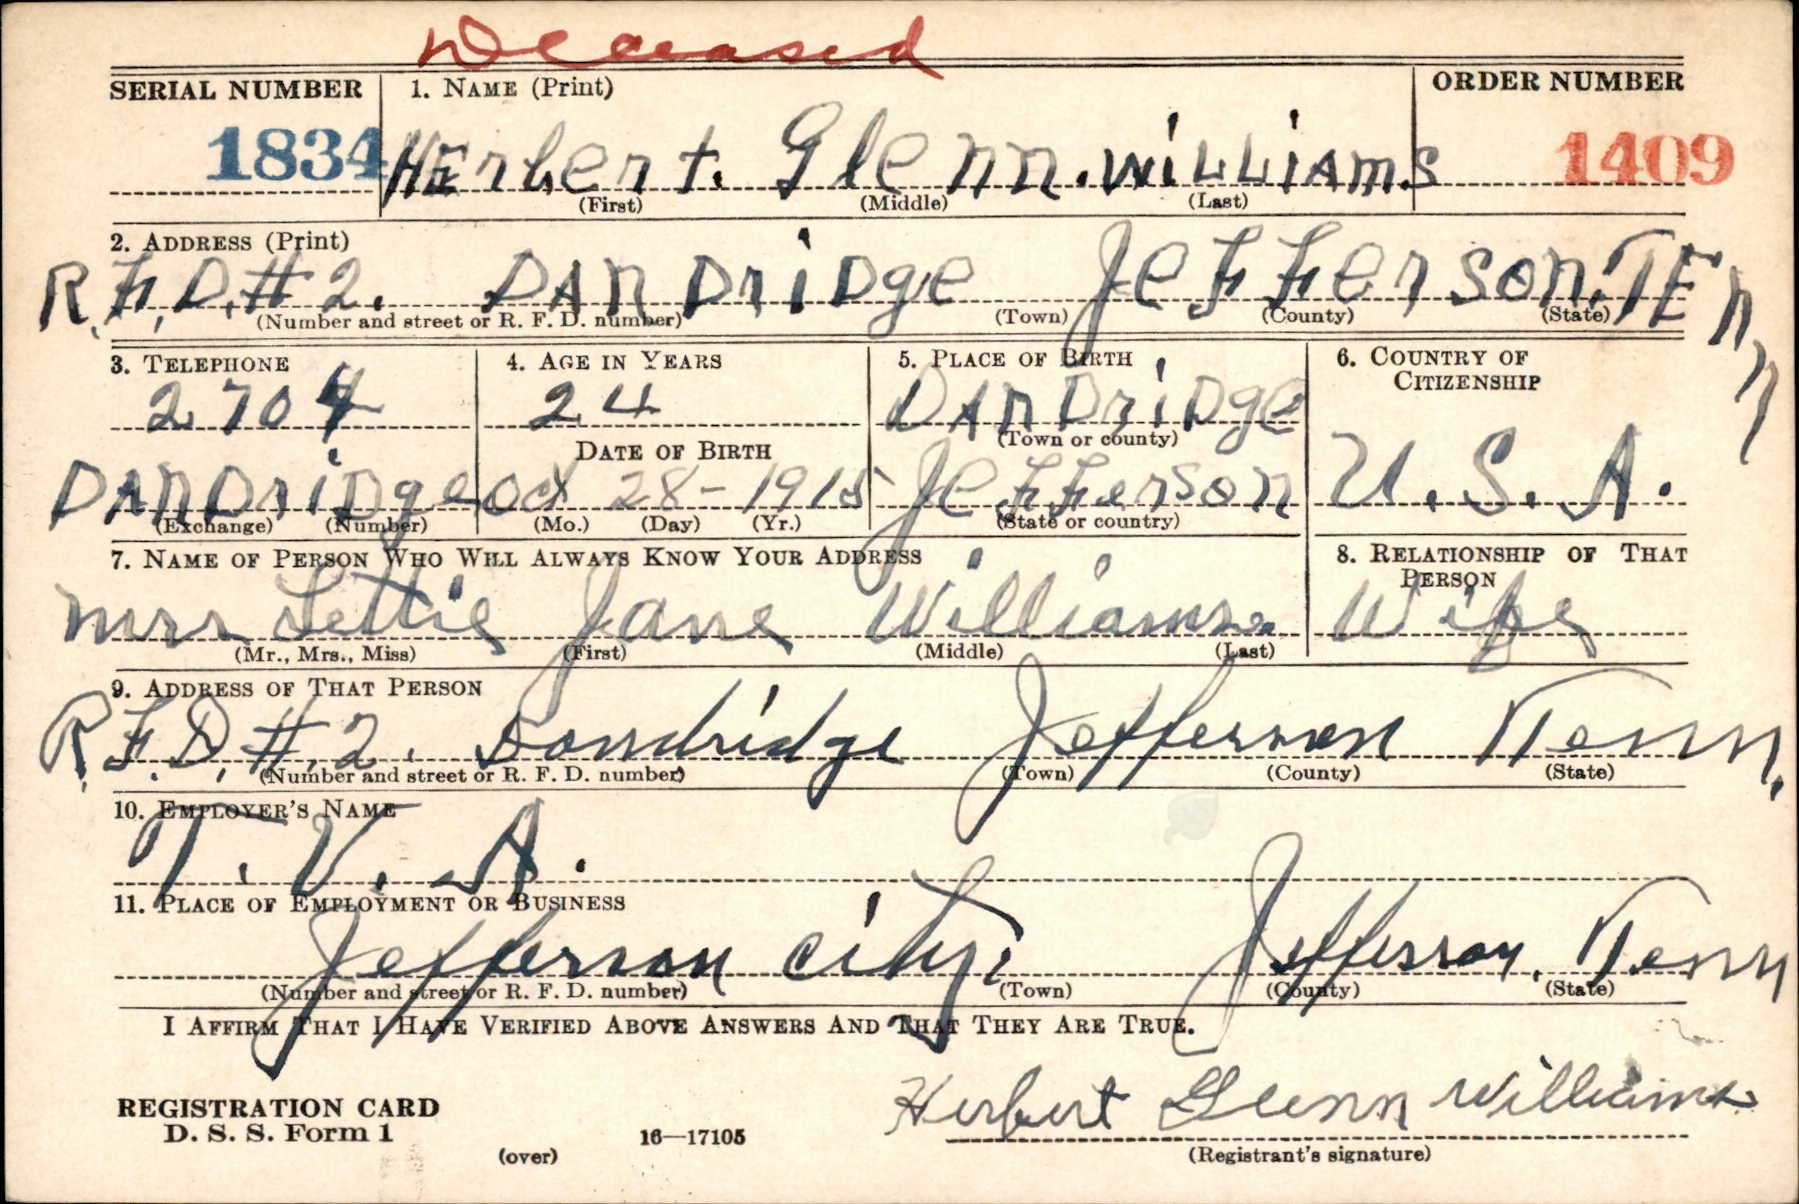 Deceased
SERIAL NUMBER 1. NAME (Print) ORDER NUMBER
1834 HErbert. Glenn. WiLLiAmS 1409
(First) (Middle) (Last)
2. ADDRESS (Print)
R.F.D.#2. DAnDriDge JeFFerson. TEnn
(Number and street or R. F. D. number) (Town) (County) (State)
3. TELEPHONE 4. AGE IN YEARS 5. PLACE OF BIRTH 6. COUNTRY OF
CITIZENSHIP
2704 24 DAnDriDge
(Town or county)
DATE OF BIRTH
DAnDriDge Oct 28-1915 JeFFerson U.S.A.
(Exchange) (Number) (Mo.) (Day) (Yr.) (State or country)
7. NAME OF PERSON WHO WILL ALWAYS KNOW YOUR ADDRESS 8. RELATIONSHIP OF THAT
PERSON
Mrs Lettie Jane Williams. Wife
(Mr., Mrs., Miss) (First) (Middle) (Last)
9. ADDRESS OF THAT PERSON
R.F.D.#.2. Dandridge Jefferson Tenn.
(Number and street or R. F. D. number) (Town) (County) (State)
10. EMPLOYER'S NAME
T.V.A.
11. PLACE OF EMPLOYMENT OR BUSINESS
Jefferson City. Jefferson. Tenn
(Number and street or R. F. D. number) (Town) (County) (State)
I AFFIRM THAT I HAVE VERIFIED ABOVE ANSWERS AND THAT THEY ARE TRUE.
Herbert Glenn Williams
REGISTRATION CARD
D. S. S. Form 1 16—17105
(over) (Registrant's signature)